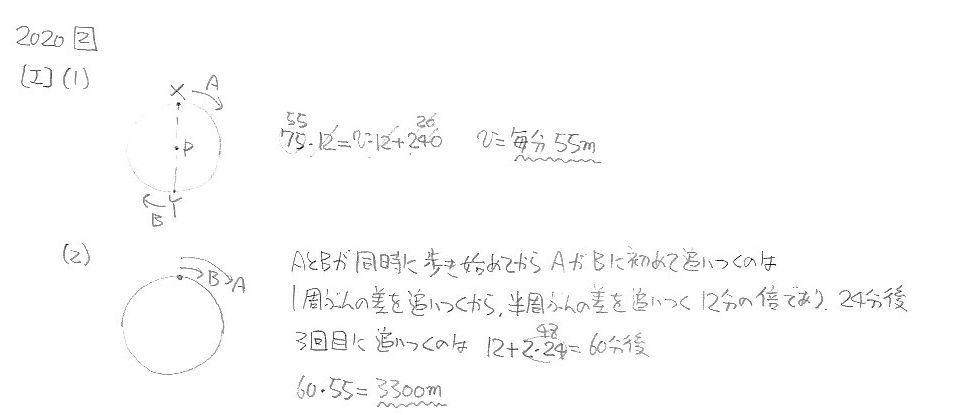 2020 2
[I] (1)
X A
P
Y
B
55 20
75・12=v・12+240 v=毎分55m
(2)
B A
AとBが同時に歩き始めてからAがBに初めて追いつくのは
1周ぶんの差を追いつくから、半周ぶんの差を追いつく12分の倍であり、24分後
48
3回目に追いつくのは 12+2・24=60分後
60・55=3300m